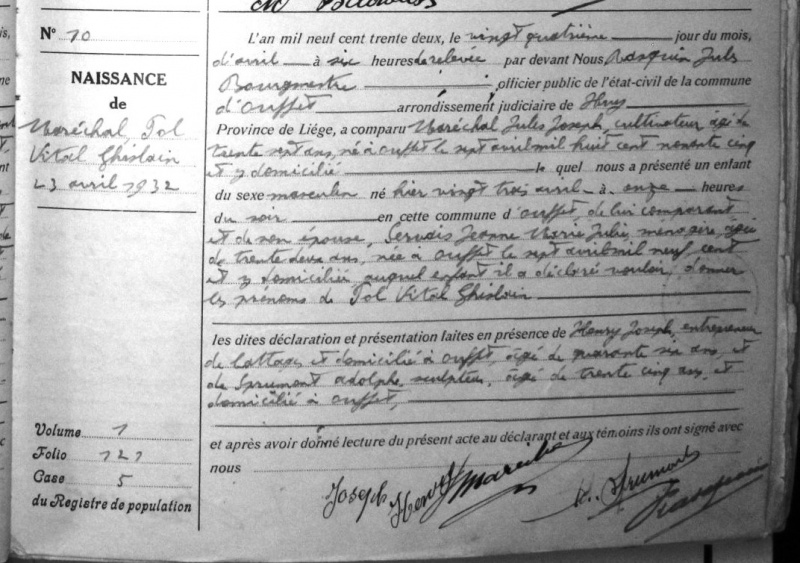 N° 10
NAISSANCE
de
Maréchal Jol
Vital Ghislain
23 avril 1932
Volume 1
Folio 121
Case 5
du Registre de population
L'an mil neuf cent trente deux, le vingt quatrième jour du mois,
d'avril à six heures de relevée par devant Nous Rasquin Jules
Bourgmestre officier public de l'état-civil de la commune
d'Ouffet arrondissement judiciaire de Huy
Province de Liége, a comparu Maréchal Jules Joseph, cultivateur, âgé de
trente sept ans, né à Ouffet le sept avril mil huit cent nonante cinq
et y domicilié le quel nous a présenté un enfant
du sexe masculin né hier vingt trois avril à onze heures
du soir en cette commune d'Ouffet, de lui comparant
et de son épouse, Servais Jeanne Marie Julie, ménagère, âgée
de trente deux ans, née à Ouffet le sept avril mil neuf cent
et y domiciliée auquel enfant il a déclaré vouloir donner
les prénoms de Jol Vital Ghislain
les dites déclaration et présentation faites en présence de Henry Joseph, entrepreneur
de battage et domicilié à Ouffet, âgé de quarante six ans, et
de Sprumont Adolphe, sculpteur, âgé de trente cinq ans, et
domicilié à Ouffet,
et après avoir donné lecture du présent acte au déclarant et aux témoins ils ont signé avec
nous
Joseph Henry Maréchal A. Sprumont